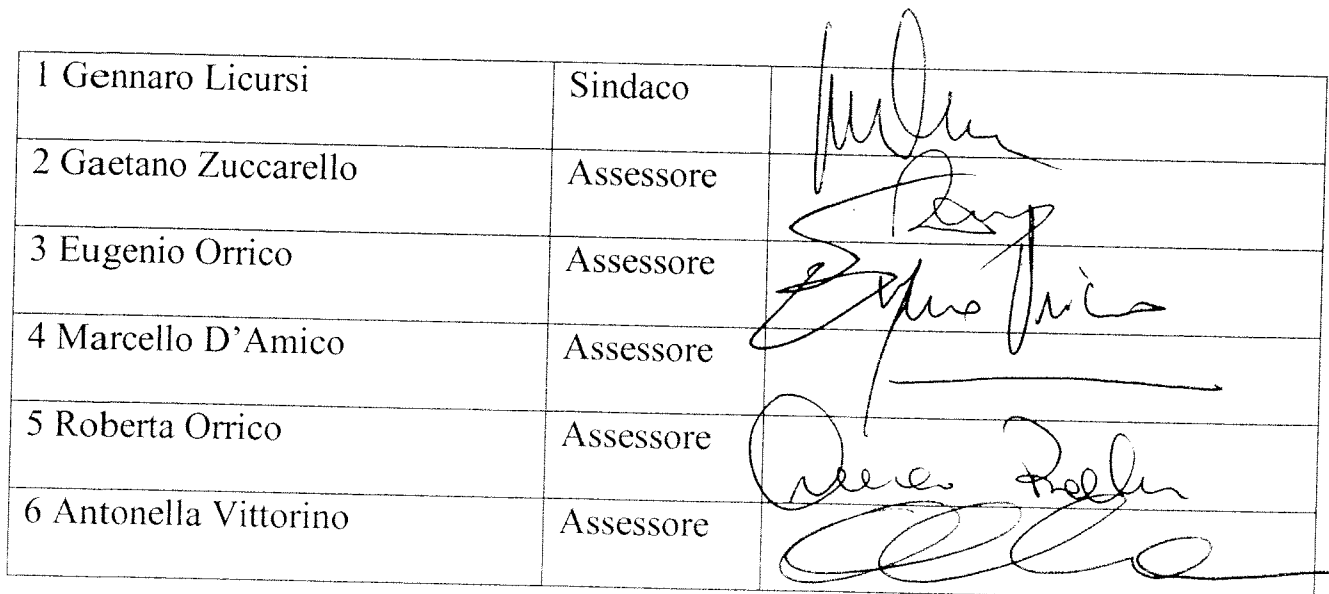 1 Gennaro Licursi Sindaco
2 Gaetano Zuccarello Assessore
3 Eugenio Orrico Assessore
4 Marcello D’Amico Assessore
5 Roberta Orrico Assessore
6 Antonella Vittorino Assessore